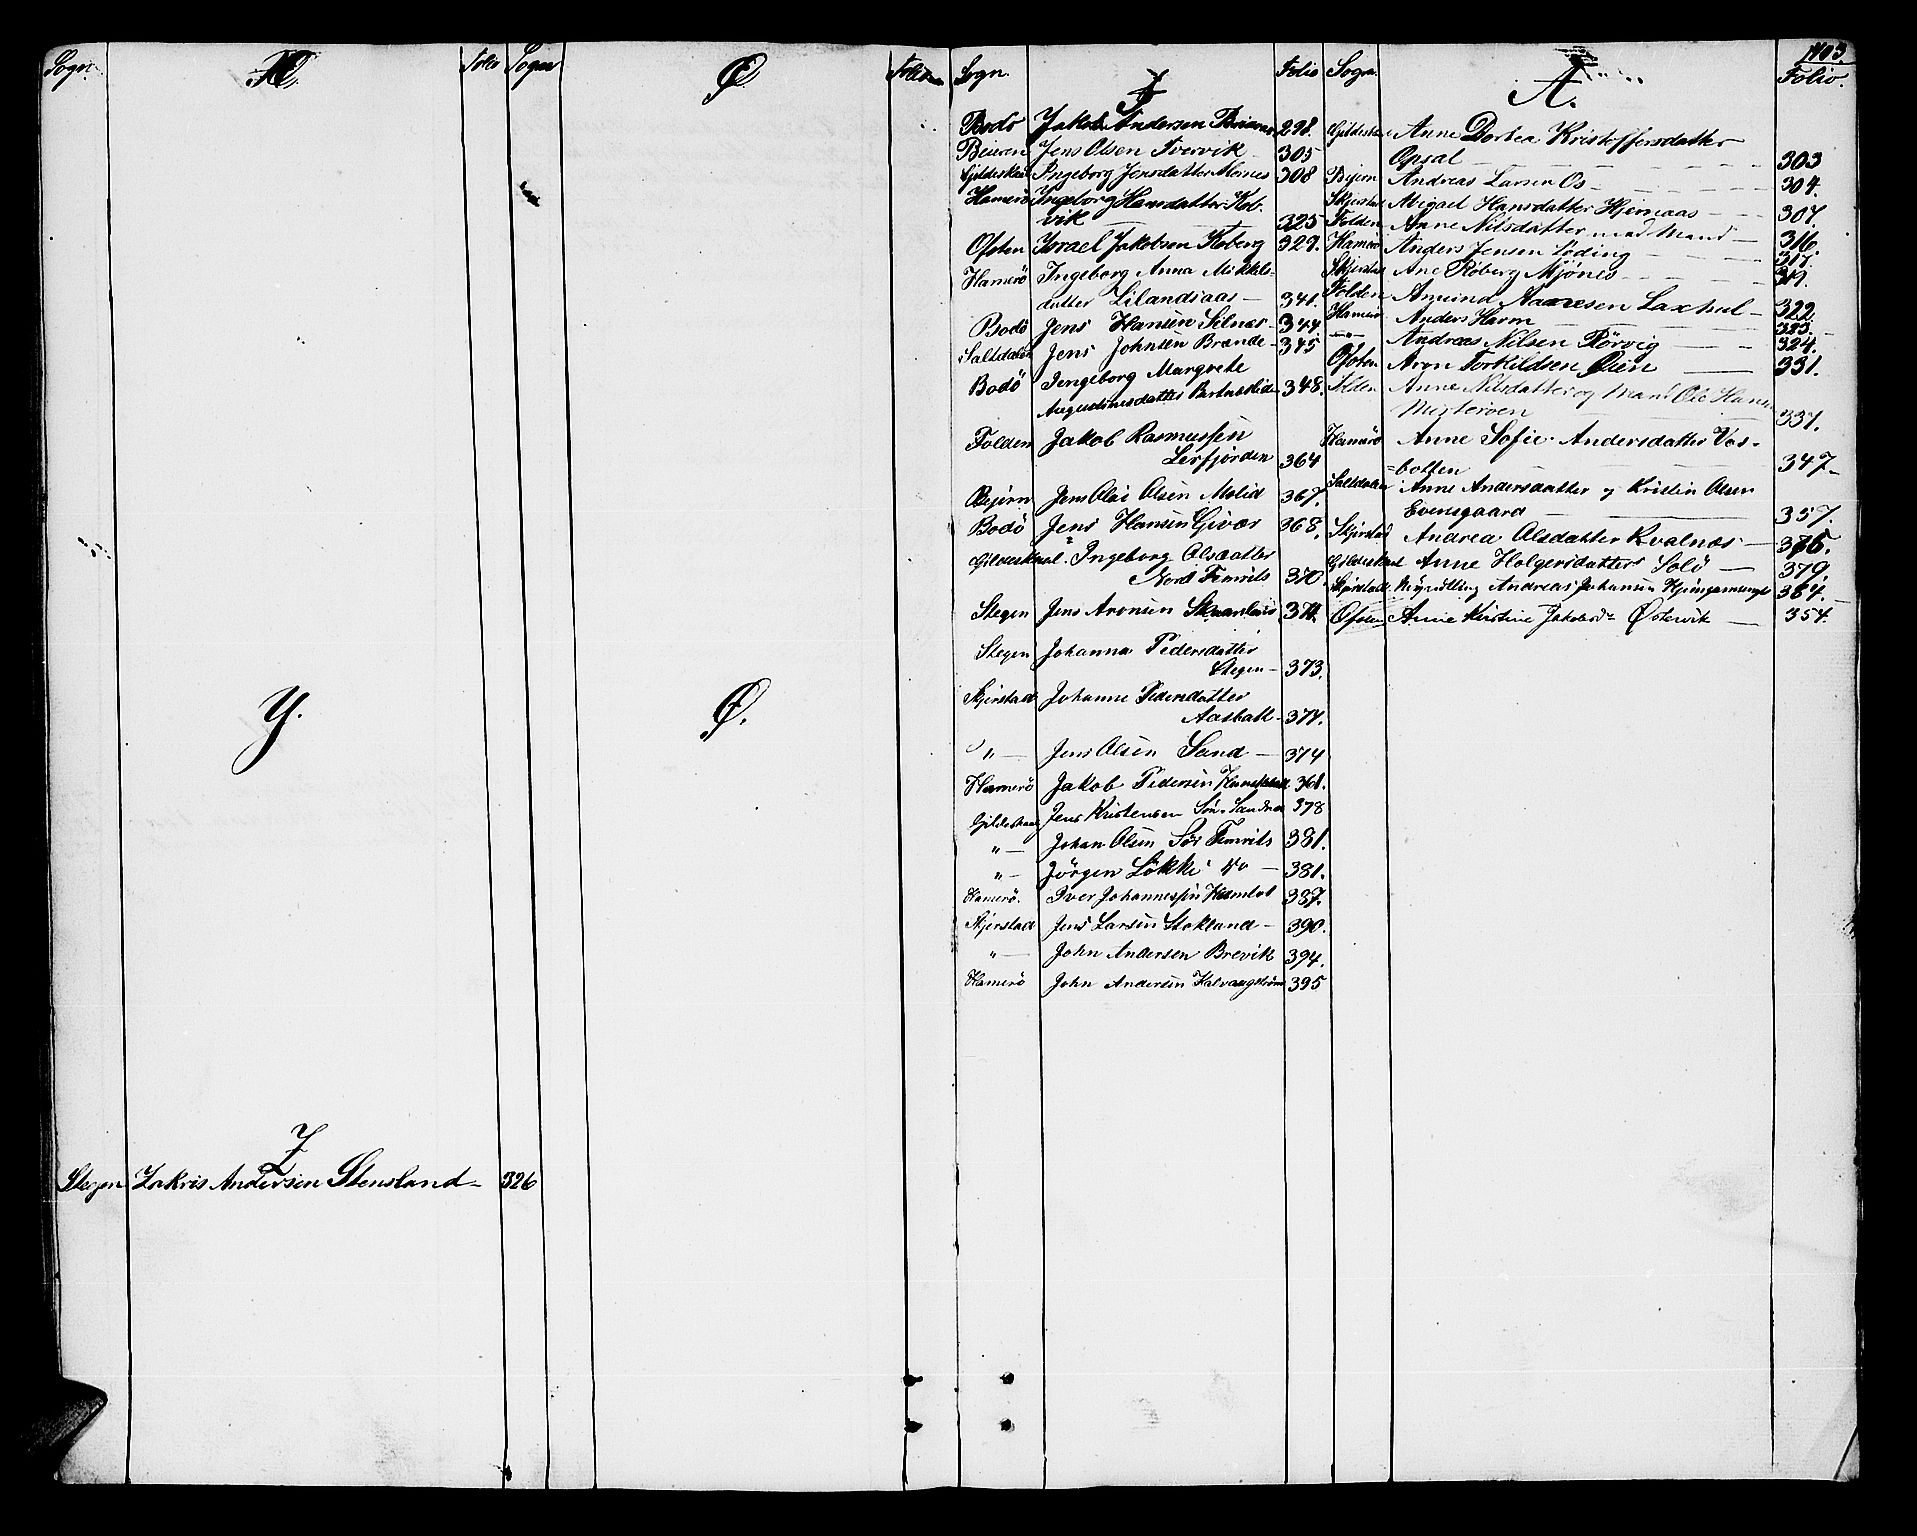 Sogn. Folio Sogn Ø Folio
Y. Ø.
Z
Stegen Zakris Andersen Stensland 326
Sogn. J Folio
Bodö Jakob Andersen 298.
Beieren Jens Olsen Tvervik 305
Gildeskaal Ingeborg Jensdatter 308
Hamerö Ingeborg Hansdatter Kob-
vik 325
Ofoten Israel Jakobsen Foberg 329.
Hamerö Ingeborg Anna Mikkels-
datter Lilandsaas 341.
Bodö Jens Hansen Selnæs 344
Saltdalen Jens Johnsen Brænde 345
Bodö Ingeborg Margrete
Augustinusdatter 348.
Folden Jakob Rasmussen
Lerfjorden 364
Bejern Jens Olai Olsen Molid 367.
Bodö Jens Hansen Givær 368.
Gildeskaal Ingeborg Olsdatter
Nord Femris 370.
Stegen Jens Aronsen Skaanlans 371.
Stegen Johanna Pedersdatter
Stegen 373.
Skjerstad Johanne Pedersdatter
Aasbakk 377.
" Jens Olsen Sand 374
Hamerö Jakob Pedersen 361.
Gildeskaal Jens Kristensen Sön. Sandnes 378
" Johan Olsen Sör Femris 381.
" Jörgen Lökke do 381.
Hamerö. Iver Johannessen Hamlot 387.
Skjerstad Jens Larsen Stokland 390.
" John Andersen Brevik 394.
Hamerö John Andersen Kalvaagström 395
403
Sogn. A. Folio.
Gildeskaal Anne Dortea Kristoffersdatter
Opsal 303
Bejern Andreas Larsen Os 304.
Skjerstad Abigael Hansdatter Hjemaas 307.
Folden Anne Nilsdatter med Mand 316.
Hamerö Anders Jensen Söding 317.
Skjerstad Ane Röberg Mjönes 319.
Folden Amund Aanesen Laxhul 322.
Hamerö Anders Harm 323.
" Andreas Nilsen Rörvig 324.
Ofoten Aron Torkildsen Öien 331.
Folden Anne Nilsdatter og Mand Ole Hansen
337.
Hamerö Anne Sofie Andersdatter Vas-
botten 347
Saltdalen Anne Andersdatter og Kristin Olsen
Evensgaard 357.
Skjerstad Andrea Olsdatter Kvalnæs 375.
Gildeskaal Anne Holgersdatter Solö 379.
Skjerstad Andreas Johansen 384.
Ofoten Anne Kristine Jakobsd. Østervik 354.